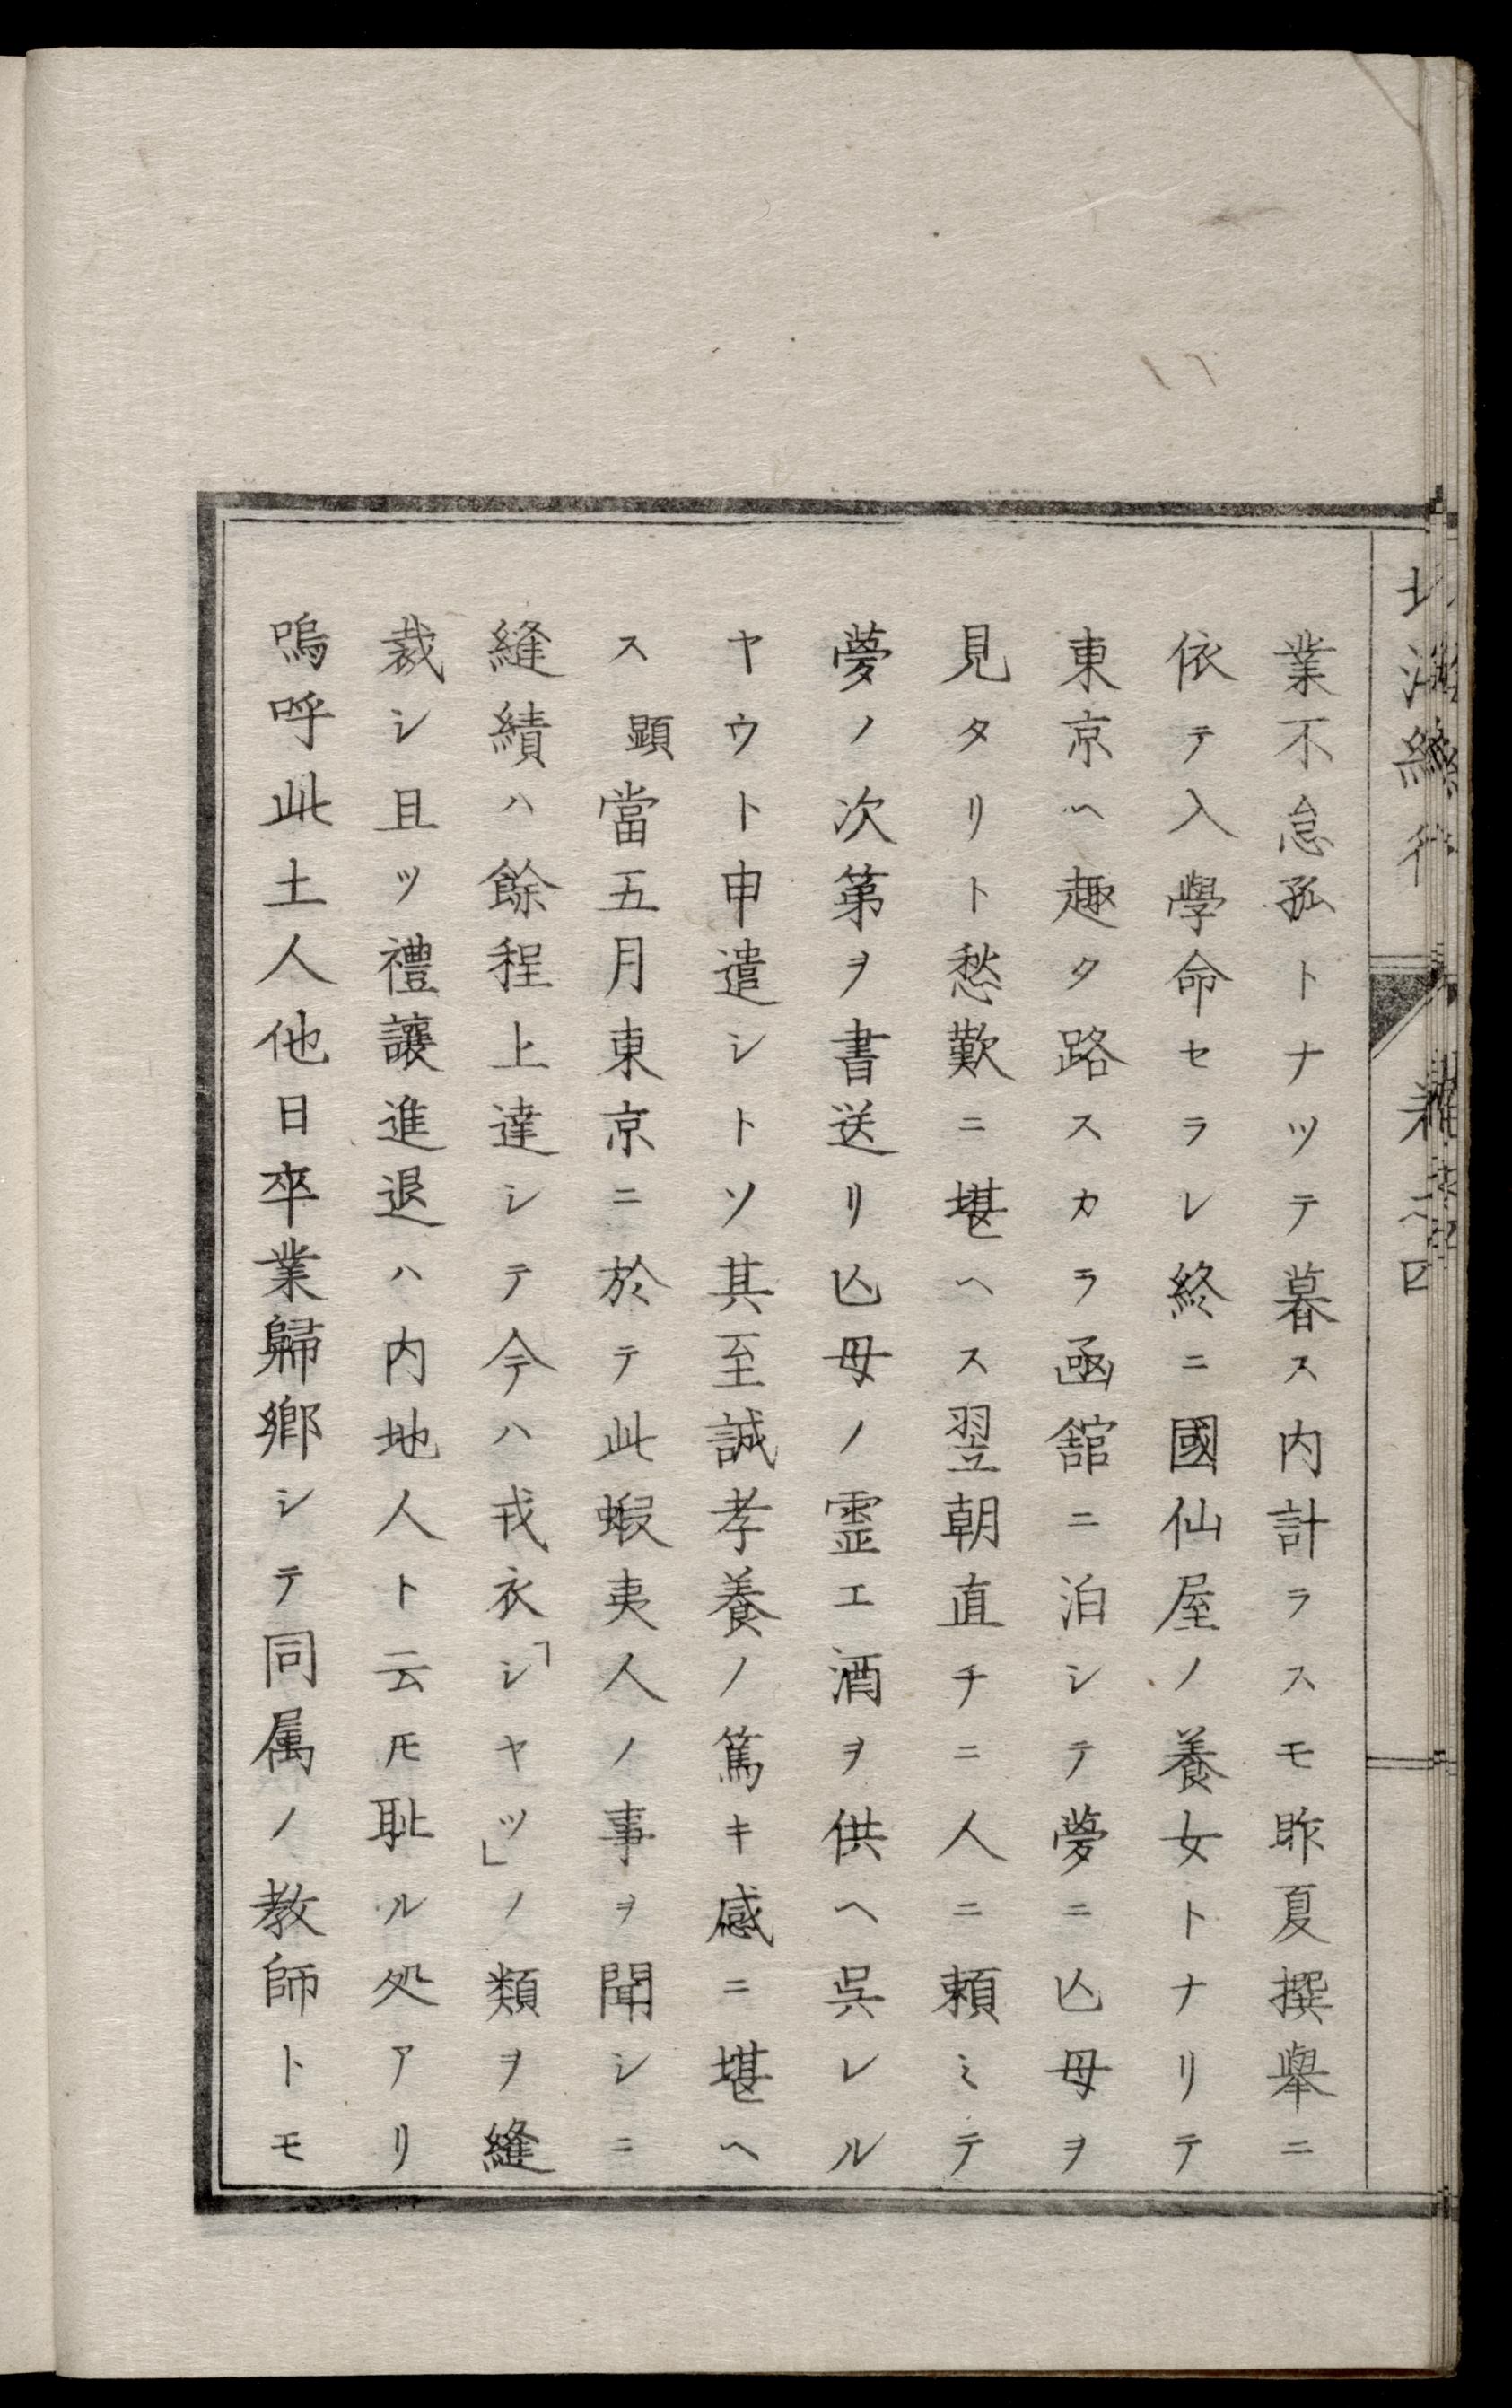 業不怠孤トナツテ暮ス内計ラスモ昨夏撰擧ニ
依テ入學命セラレ終ニ國仙屋ノ養女トナリテ
東京ヘ趣タ路スカラ凾舘ニ泊シテ夢ニ亾母ヲ
見タリト愁歎ニ堪ヘス翌朝直チニ人ニ頼ミテ
夢ノ次第ヲ書送リ亾母ノ霊エ酒ヲ供ヘ呉レル
ヤウト申遣シトソ其至誠孝養ノ篤キ感ニ堪ヘ
ス顕當五月東京ニ於テ此蝦夷人ノ事ヲ聞シニ
縫績ハ餘程上達シテ今ハ戎衣「シヤツ」ノ類ヲ縫
裁シ且ツ禮讓進退ハ内地人ト云𪜈恥ル処アリ
嗚呼此土人他日卒業歸鄉シテ同属ノ教師トモ